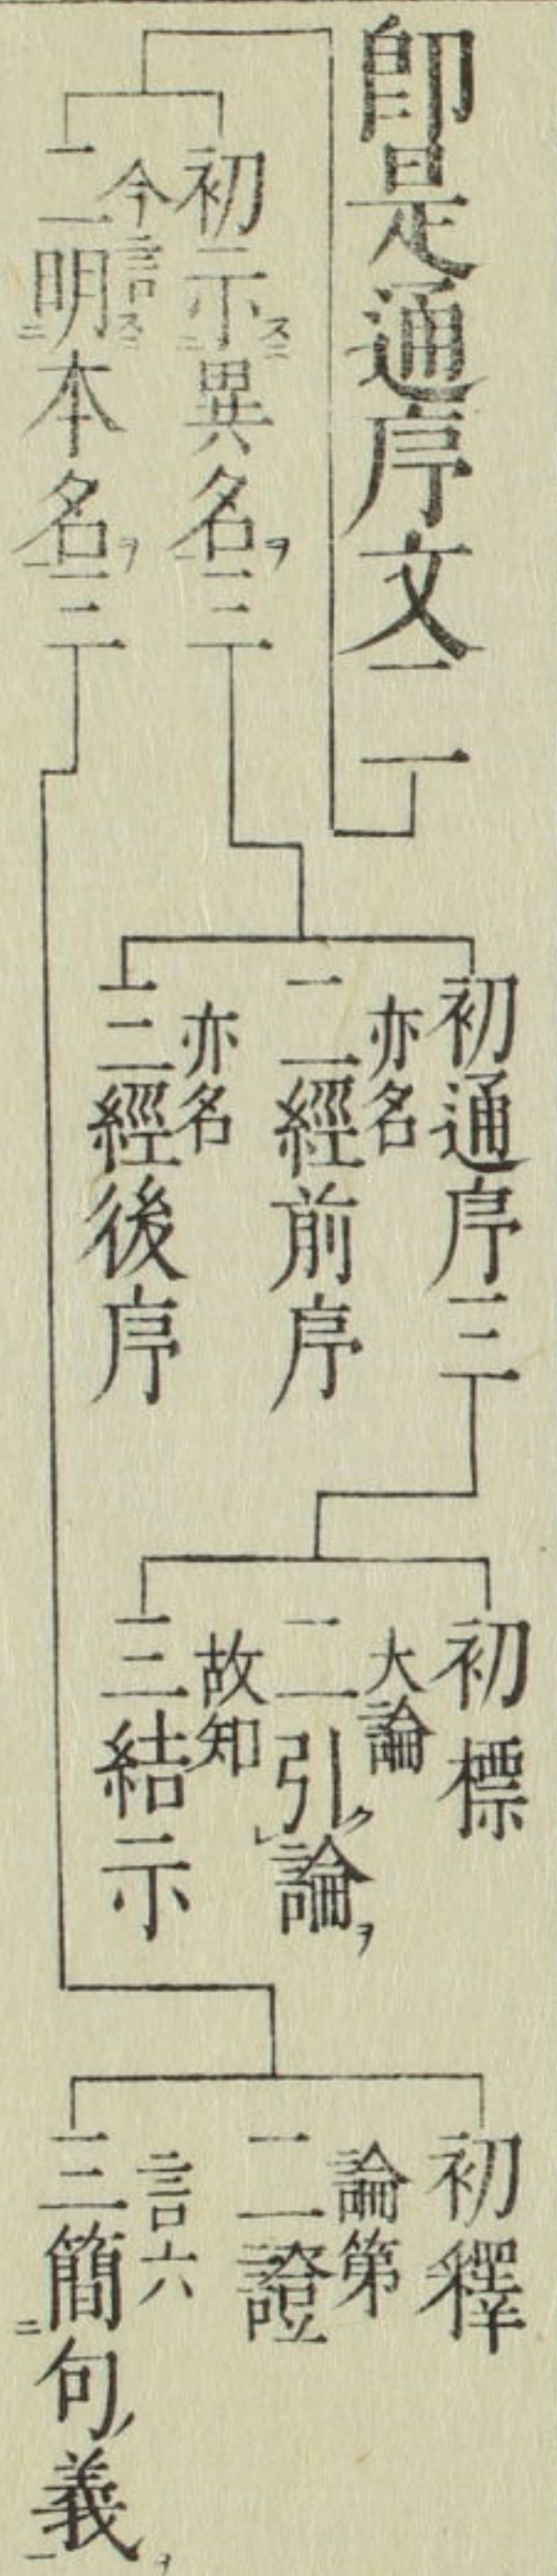 卽是通序文二
初示異名三
今言
二明本名三
初通序三
亦名
二經前序
亦名
三經後序
初標
大論
二引論
故知
三結示
初釋
論第
二證
言六
三簡句義